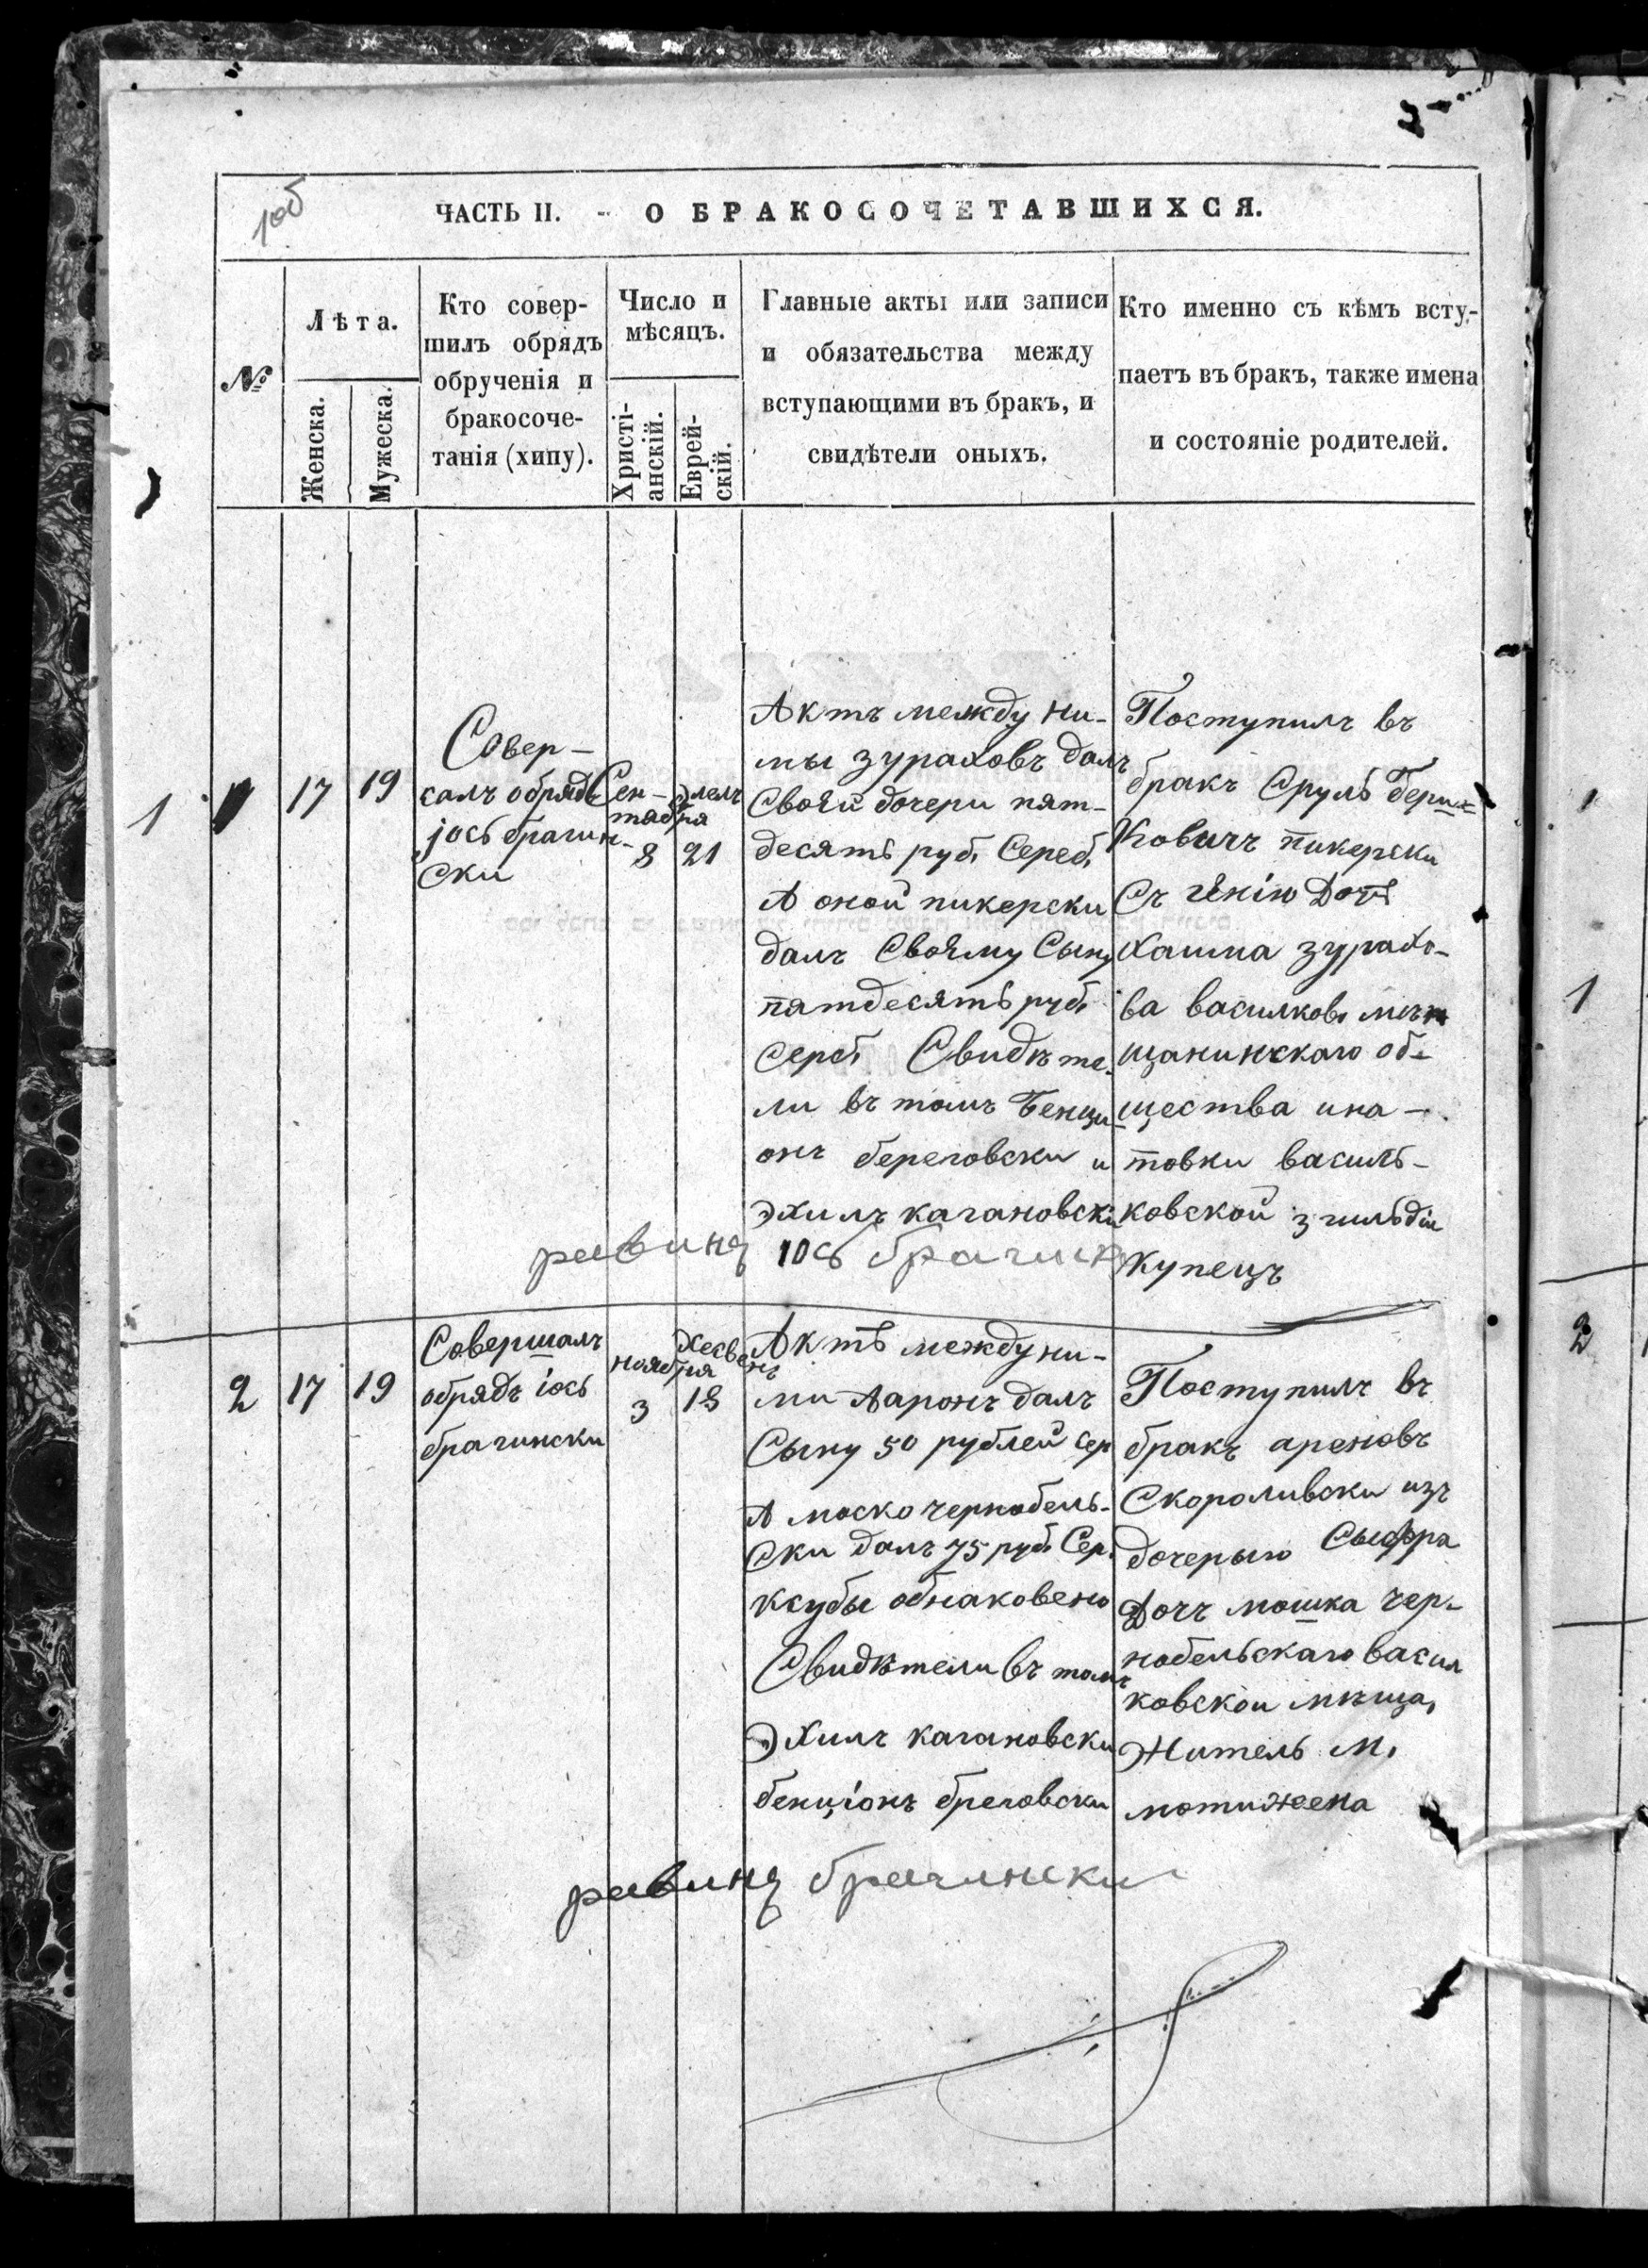 1об
ЧАСТЬ II. - О БРАКОСОЧЕТАВШИХСЯ.
№
Лѣта.
Женска.
Мужеска.
Кто совер-
шилъ обрядъ
обрученія и
бракосоче-
танія (хипу).
Число и
мѣсяцъ.
Христі-
анскій.
Еврей-
скій.
Главные акты или записи
и обязательства между
вступающими въ бракъ, и
свидѣтели оныхъ.
Кто именно съ кѣмъ всту-
паетъ въ бракъ, также имена
и состояніе родителей.
1
17
19
Совер-
салъ обрядъ
іось брагин-
ски
Сен-
тября
8
Элелъ
21
Актъ между ни-
мы зураховъ далъ
Своей дочери пят-
десять руб. Сереб.
А оной пикерски
далъ Своему Сыну
пятдесять руб.
Сереб. Свидѣте-
ли въ томъ Бенци-
онъ береговски и
Эхилъ кагановски
Поступилъ въ
бракъ Сруль Бери-
Ковичъ пикерски
Съ Дочь
Хаима зурахо-
ва василков. мѣ-
щанинскаго об-
щества
товки василь-
ковской 3 гильдіи
Купецъ
равинъ іось брагински
2
17
19
Совершалъ
обрядъ іось
брагински
ноября
3
Хесвенъ
18
Актъ между ни-
ми Ааронъ далъ
Сыну 50 рублей сер
А моско чернобель-
ски далъ 75 руб. Сер.
ксубы обнаковено
Свидѣтели въ томъ
Эхилъ кагановски
бенціонъ бреговски
Поступилъ въ
бракъ ареновъ
Скороливски изъ
дочерыю Сыфра
Дочъ мошка чер-
нобельскаго васил
ковской мѣща.
Житель м.
мотижена
равинъ брагински
1
2